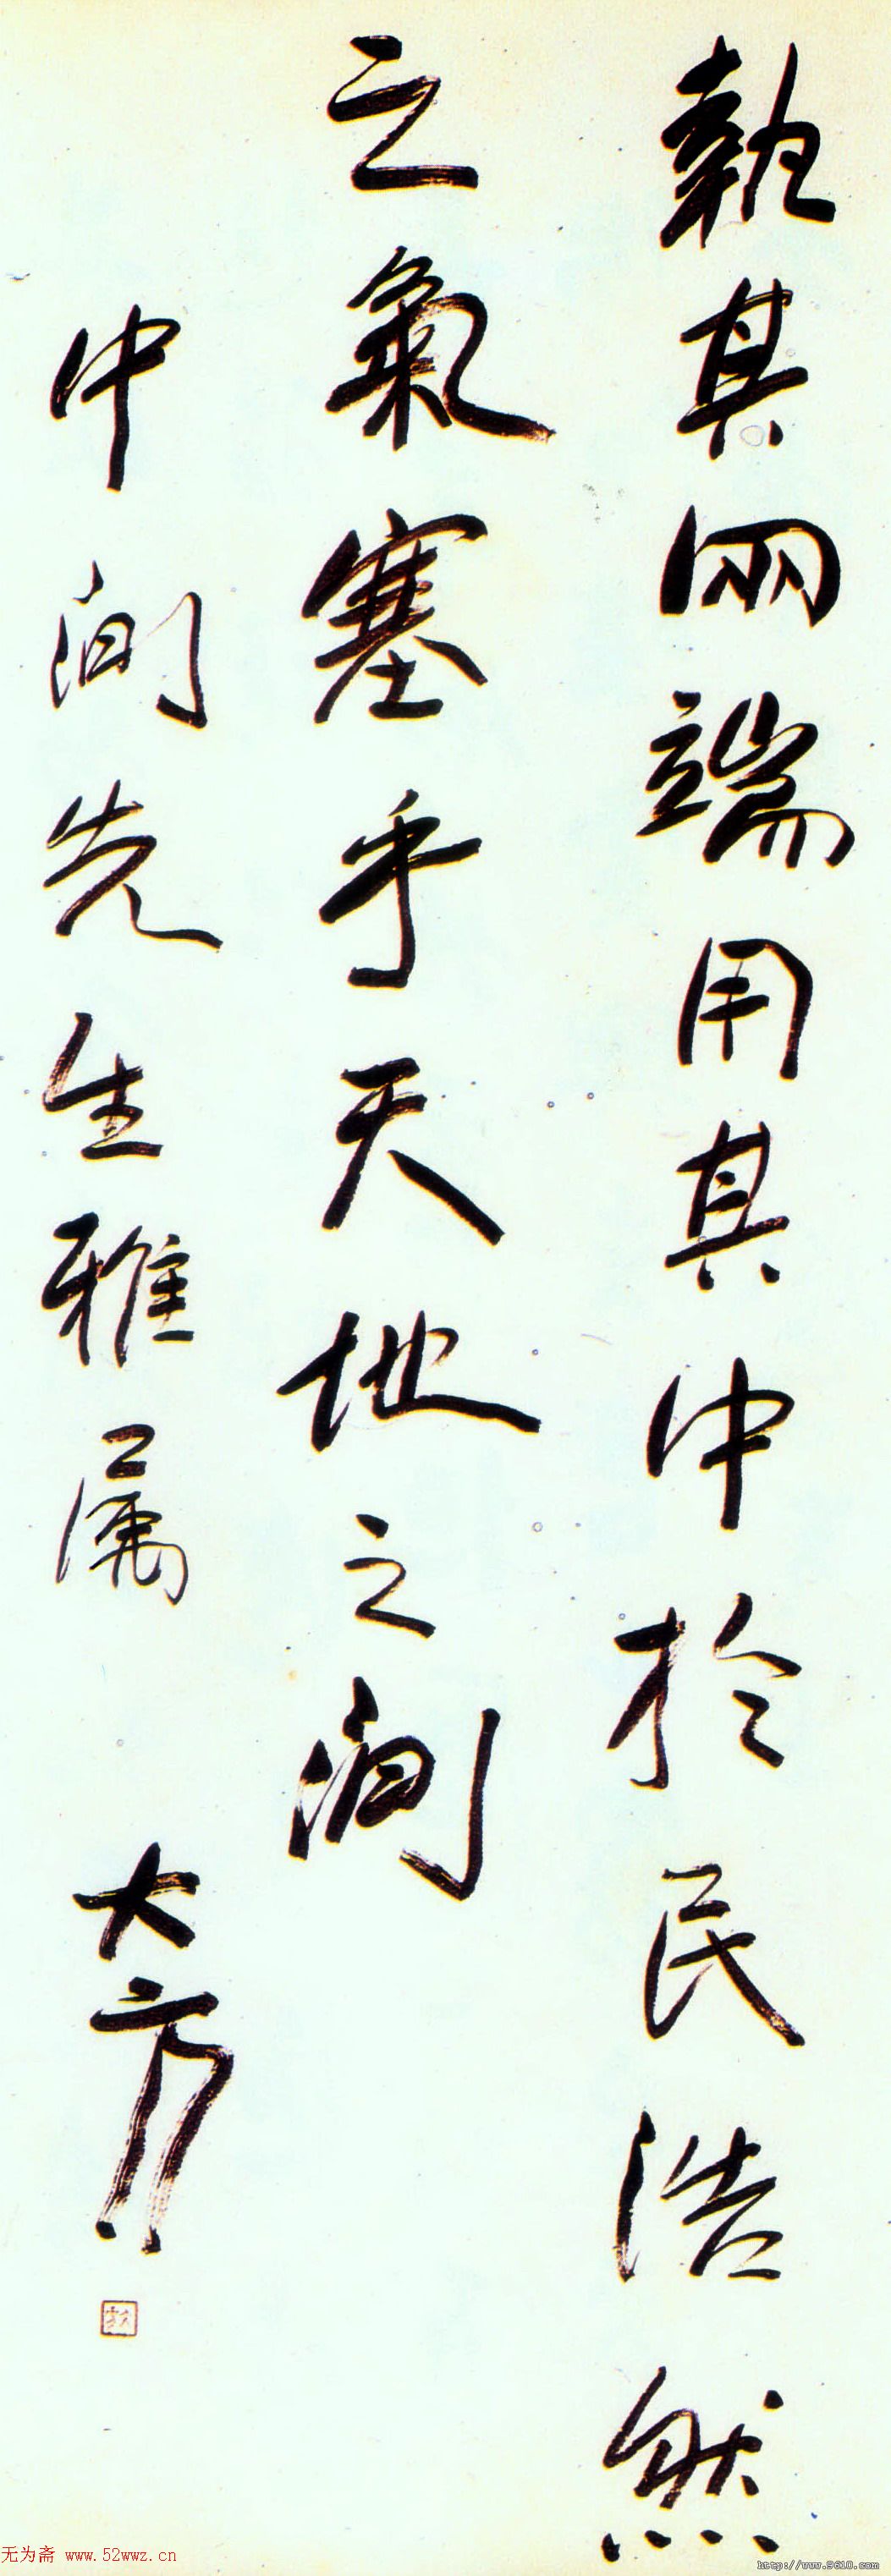 執其兩端用其中於民浩然
之氣塞乎天地之間
中間先生雅属
大方
无为斋 www.52wwz.cn
http://www.9610.com